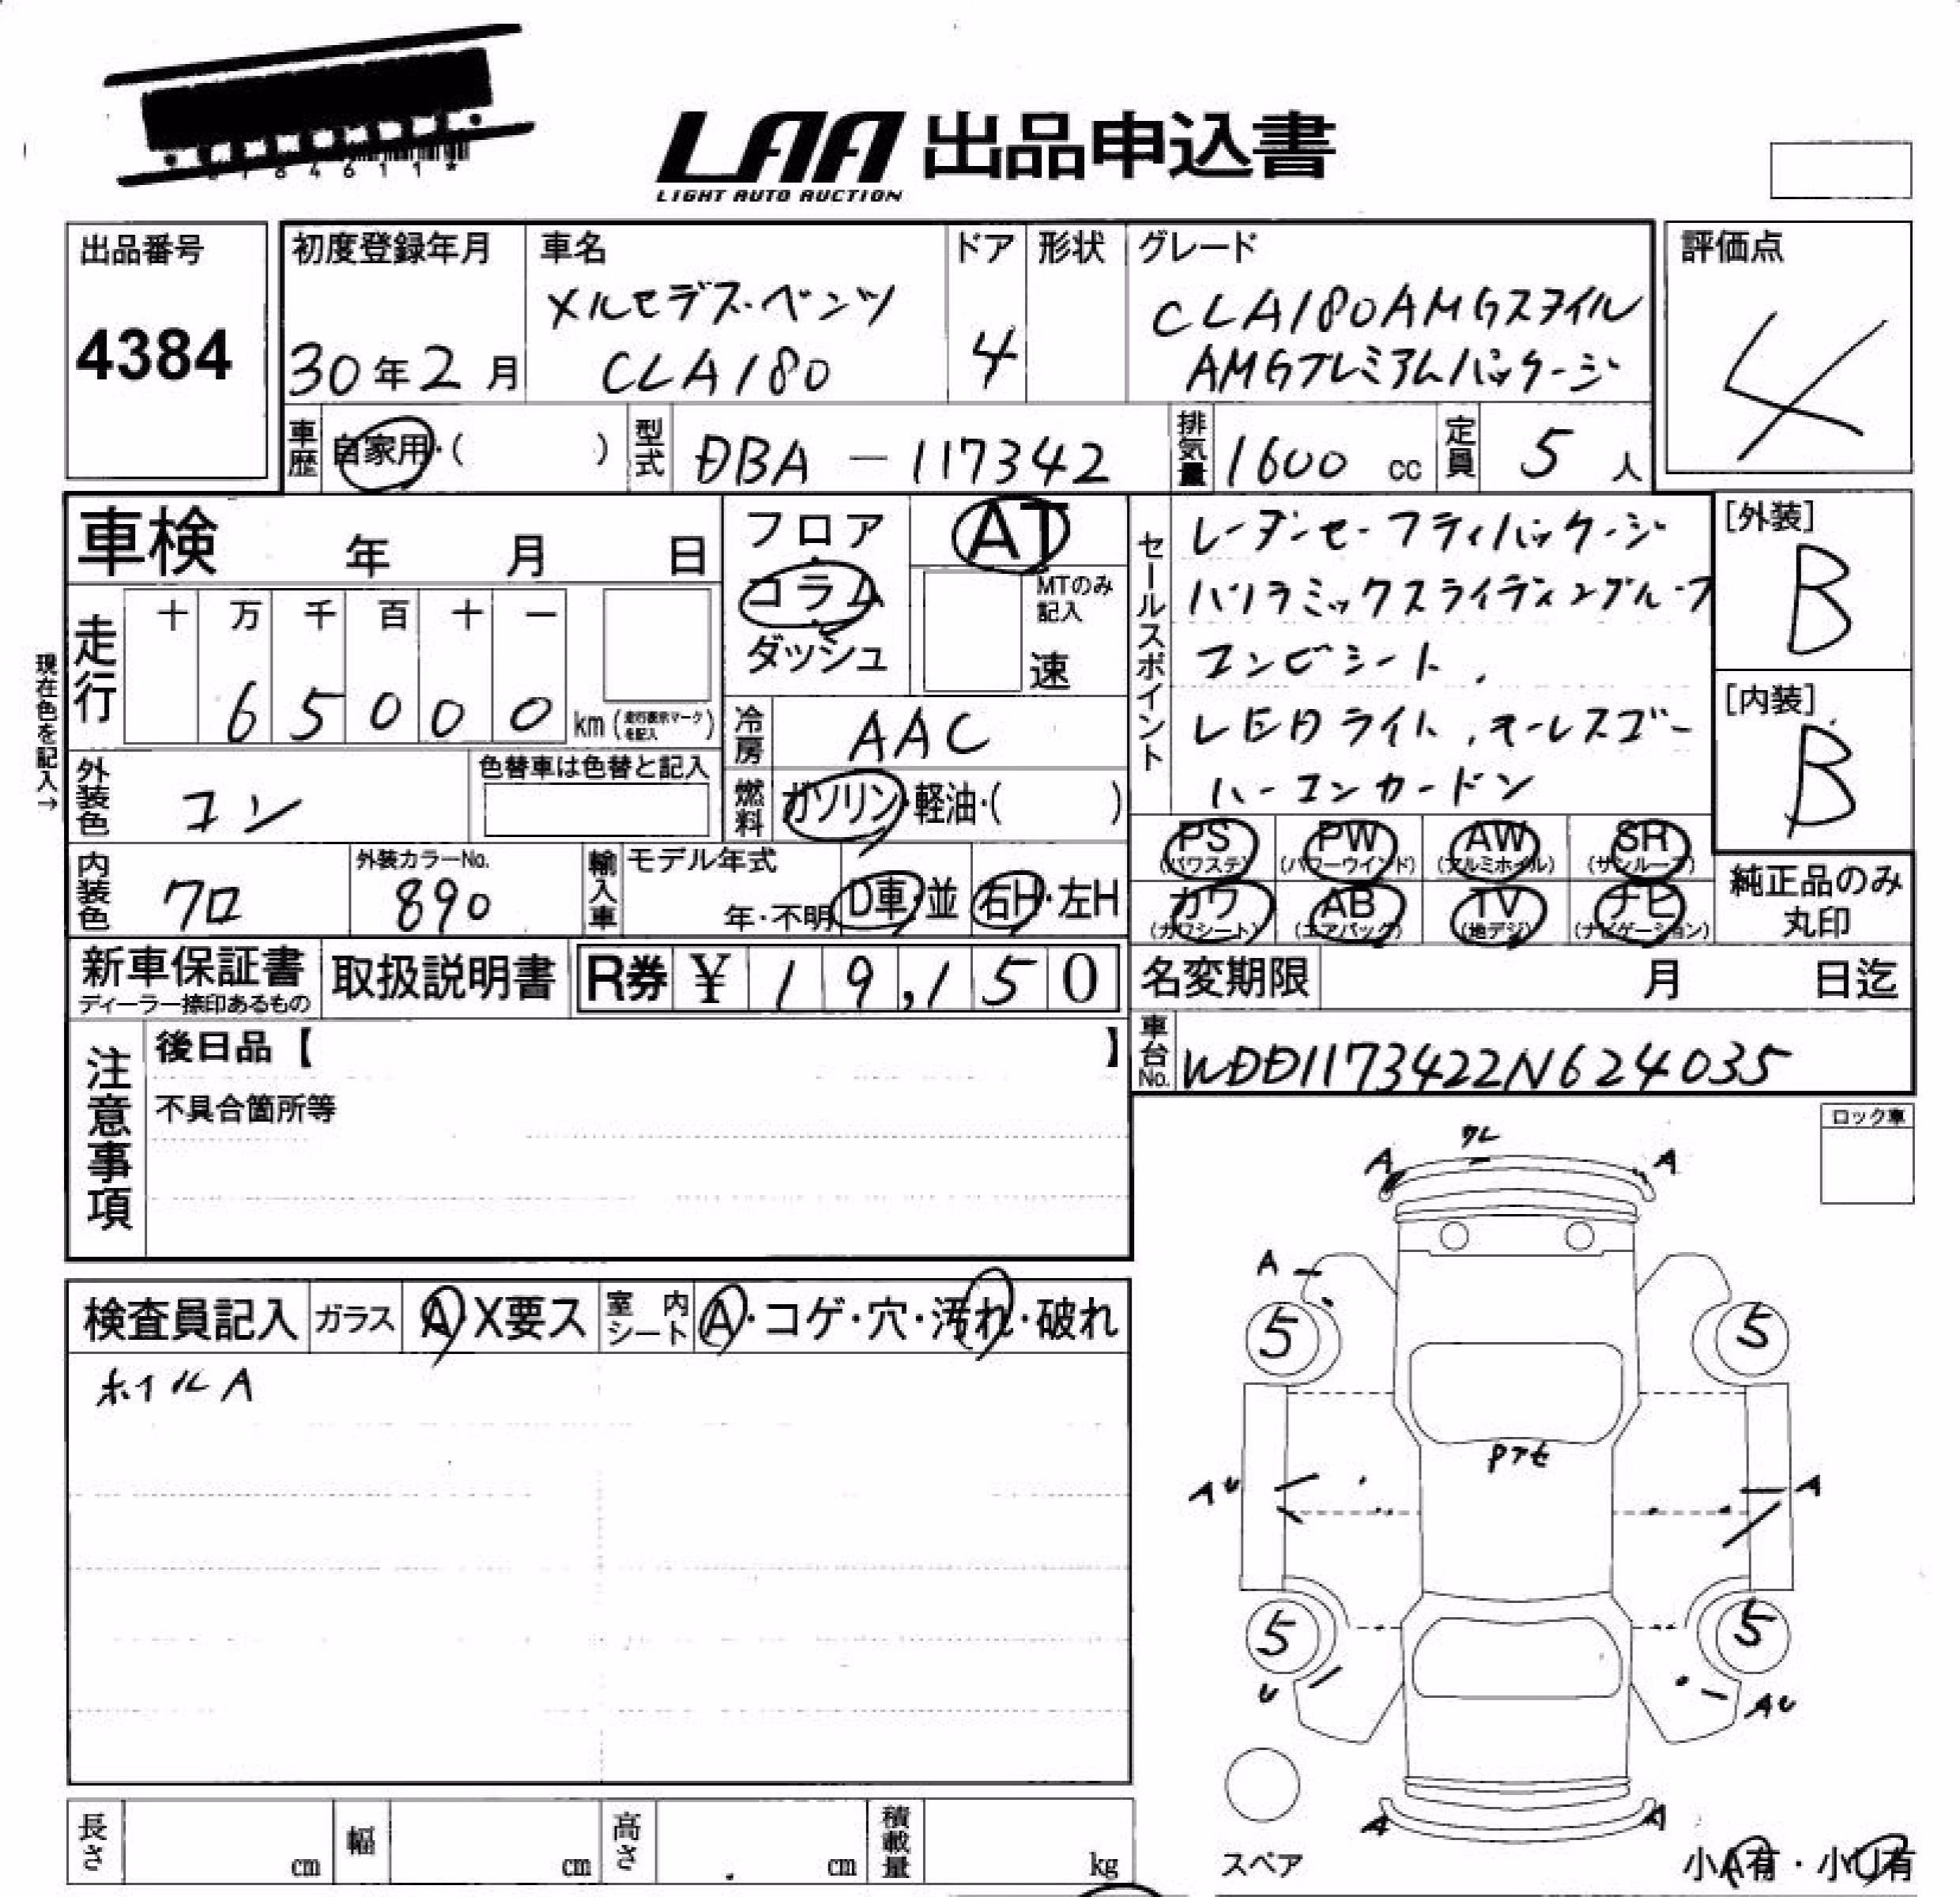 LAA 出品申込書
LIGHT AUTO AUCTION
出品番号
4384
初度登録年月
30年2月
車名
メルセデス・ベンツ
CLA180
ドア
4
形状
グレード
CLA180AMGスタイル
AMGプレミアムパッケージ
評価点
4
車歴
自家用・( )
型式
DBA-117342
排気量
1600 cc
定員
5 人
車検 年 月 日
フロア
コラム
ダッシュ
AT
MTのみ
記入
速
セールスポイント
レーダーセーフティパッケージ
パノラミックスライディングルーフ
コンビシート
LEDライト,キーレスゴー
ハーマンカードン
[外装]
B
[内装]
B
現在色を記入→
走行
十 万 千 百 十 一
6 5 0 0 0 km (走行表示マークを記入)
冷房
AAC
外装色
コン
色替車は色替と記入
燃料
ガソリン・軽油・( )
PS
(パワステ)
PW
(パワーウインド)
AW
(アルミホイル)
SR
(サンルーフ)
カワ
(カワシート)
AB
(エアバック)
TV
(地デジ)
ナビ
(ナビゲーション)
純正品のみ
丸印
内装色
クロ
外装カラーNo.
890
輸入車
モデル年式
年・不明
D車・並
右H・左H
新車保証書
ディーラー捺印あるもの
取扱説明書
R券 ¥ 19,150
名変期限 月 日迄
車台No.
WDD1173422N624035
注意事項
後日品【 】
不具合箇所等
ロック車
検査員記入
ガラス
A・X要ス
室内シート
A・コゲ・穴・汚れ・破れ
ホイルA
ワレ
A
A
A
5
5
Pアセ
AU
A
5
5
U
AU
A
A
スペア
小A有・小U有
長さ cm
幅 cm
高さ cm
積載量 kg